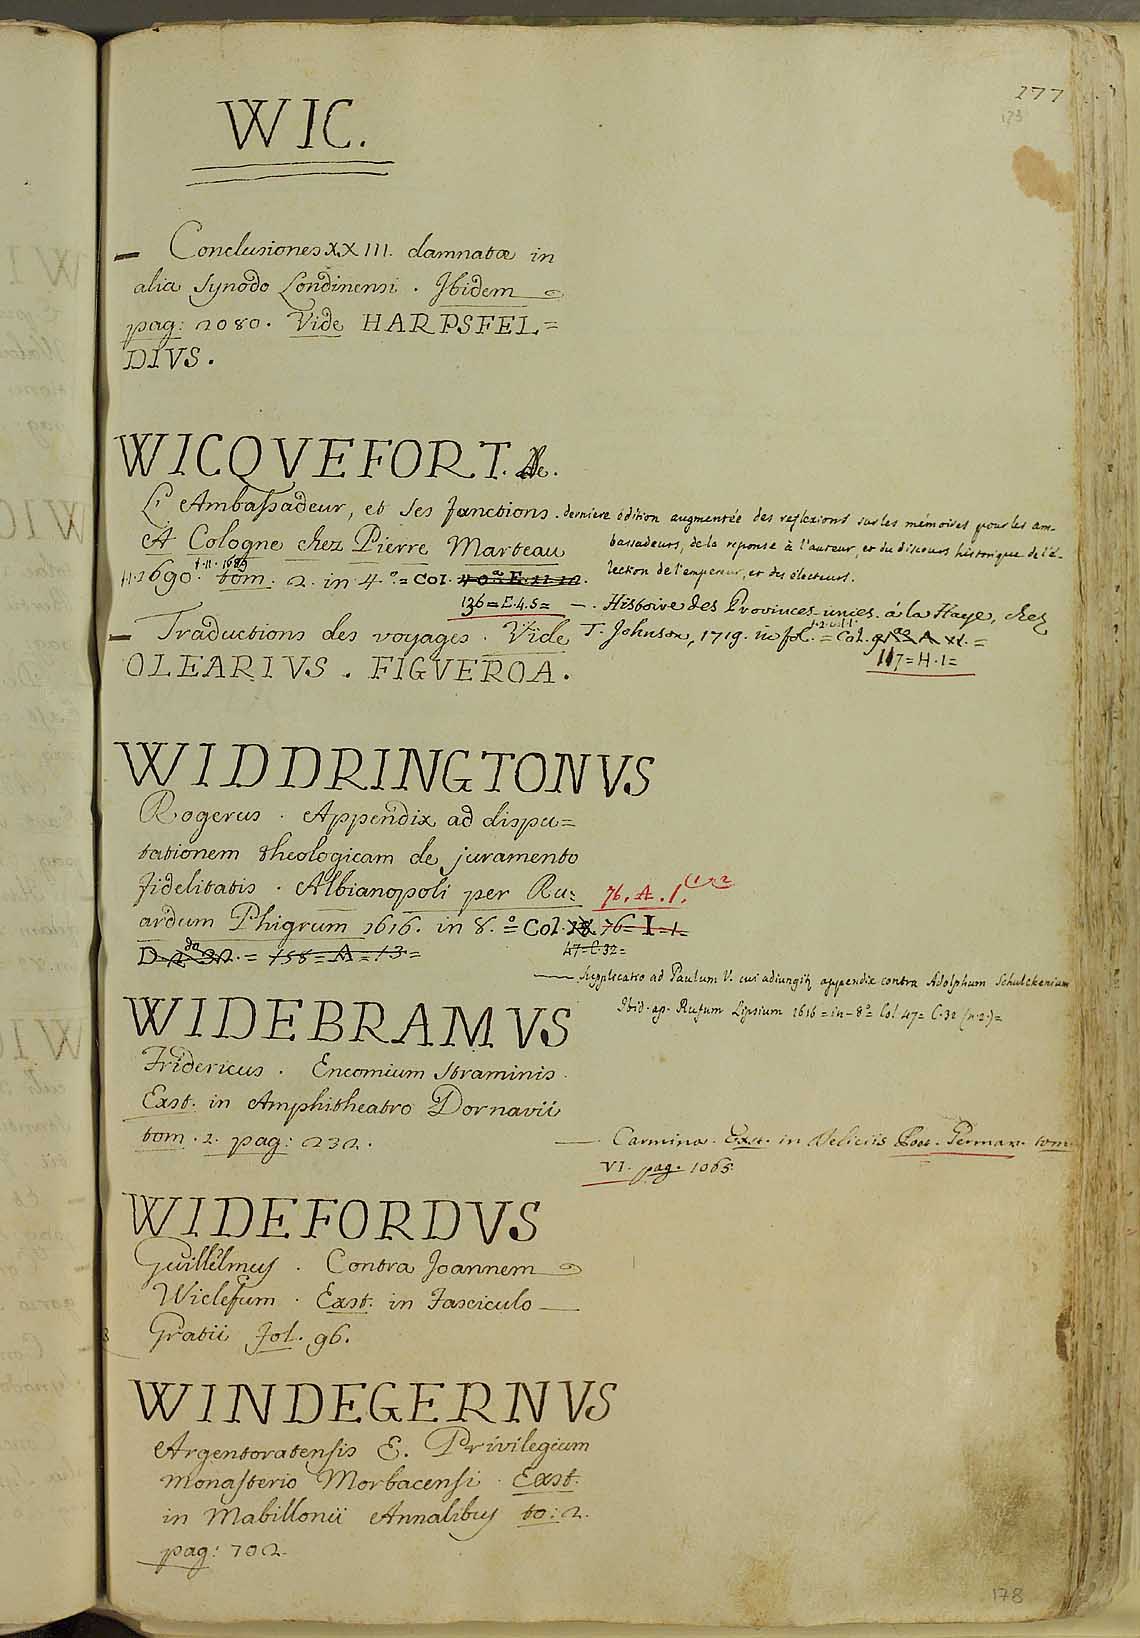 177
173
WIC.
— Conclusiones XXIII. damnatæ in
alia Synodo Londinensi. Ibidem
pag: 2080. Vide HARPSFEL=
DIVS.
WICQVEFORT. de.
L'Ambassadeur, et ses fonctions. derniere édition augmentée des reflexions sur les mémoires pour les am-
bassadeurs, de la reponse à l'auteur, et du discours historique de l'é-
lection de l'empereur, et des électeurs.
A Cologne chez Pierre Marteau
1690. tom. 2. in 4.° = Col.
136=E.4.5=
—. Histoire des Provinces-unies. à la Haye, chez
T. Johnson, 1719. in fol. = Col.
117=H.1=
— Traductions des voyages. Vide
OLEARIVS. FIGVEROA.
WIDDRINGTONVS
Rogerus. Appendix ad dispu=
tationem theologicam de juramento
fidelitatis. Albianopoli per Ru:
ardum Phigrum 1616. in 8.° = Col. 76=I=1=
76. A. 1. (1-2
D = 158=A=13=
47=C.32=
— Supplicatio ad Paulum V. cui adiungitur appendix contra Adolphum Schulckenium
Ibid. ap. Rufum Lipsium 1616=in-8°= Col 47= C.32 (n.2.)=
WIDEBRAMVS
Fridericus. Encomium Straminis.
Exst. in Amphitheatro Dornavii
tom. 2. pag: 232.
—. Carmina. Exst. in Deliciis Poet. German. tom.
VI. pag. 1065.
WIDEFORDVS
Guillelmus. Contra Joannem
Wiclefum. Exst. in Fasciculo —
Gratii fol. 96.
WINDEGERNVS
Argentoratensis E. Privilegium
monasterio Morbacensi. Exst.
in Mabillonii Annalibus to: 2.
pag: 702.
178